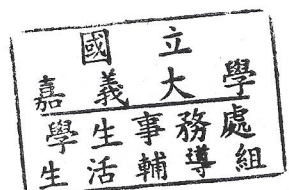 國立
嘉義大學
學生事務處
生活輔導組